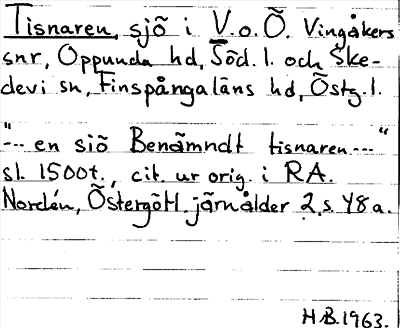 Tisnaren, sjö i V.o.Ö. Vingåkers
snr, Oppunda hd, Söd. l. och Ske-
devi sn, Finspångaläns hd, Östg. l.
"--- en siö Benämndt tisnaren ---"
sl. 1500t., cit. ur orig. i RA.
Nordén, Östergötl. järnålder 2, s. 48 a.
H.B. 1963.